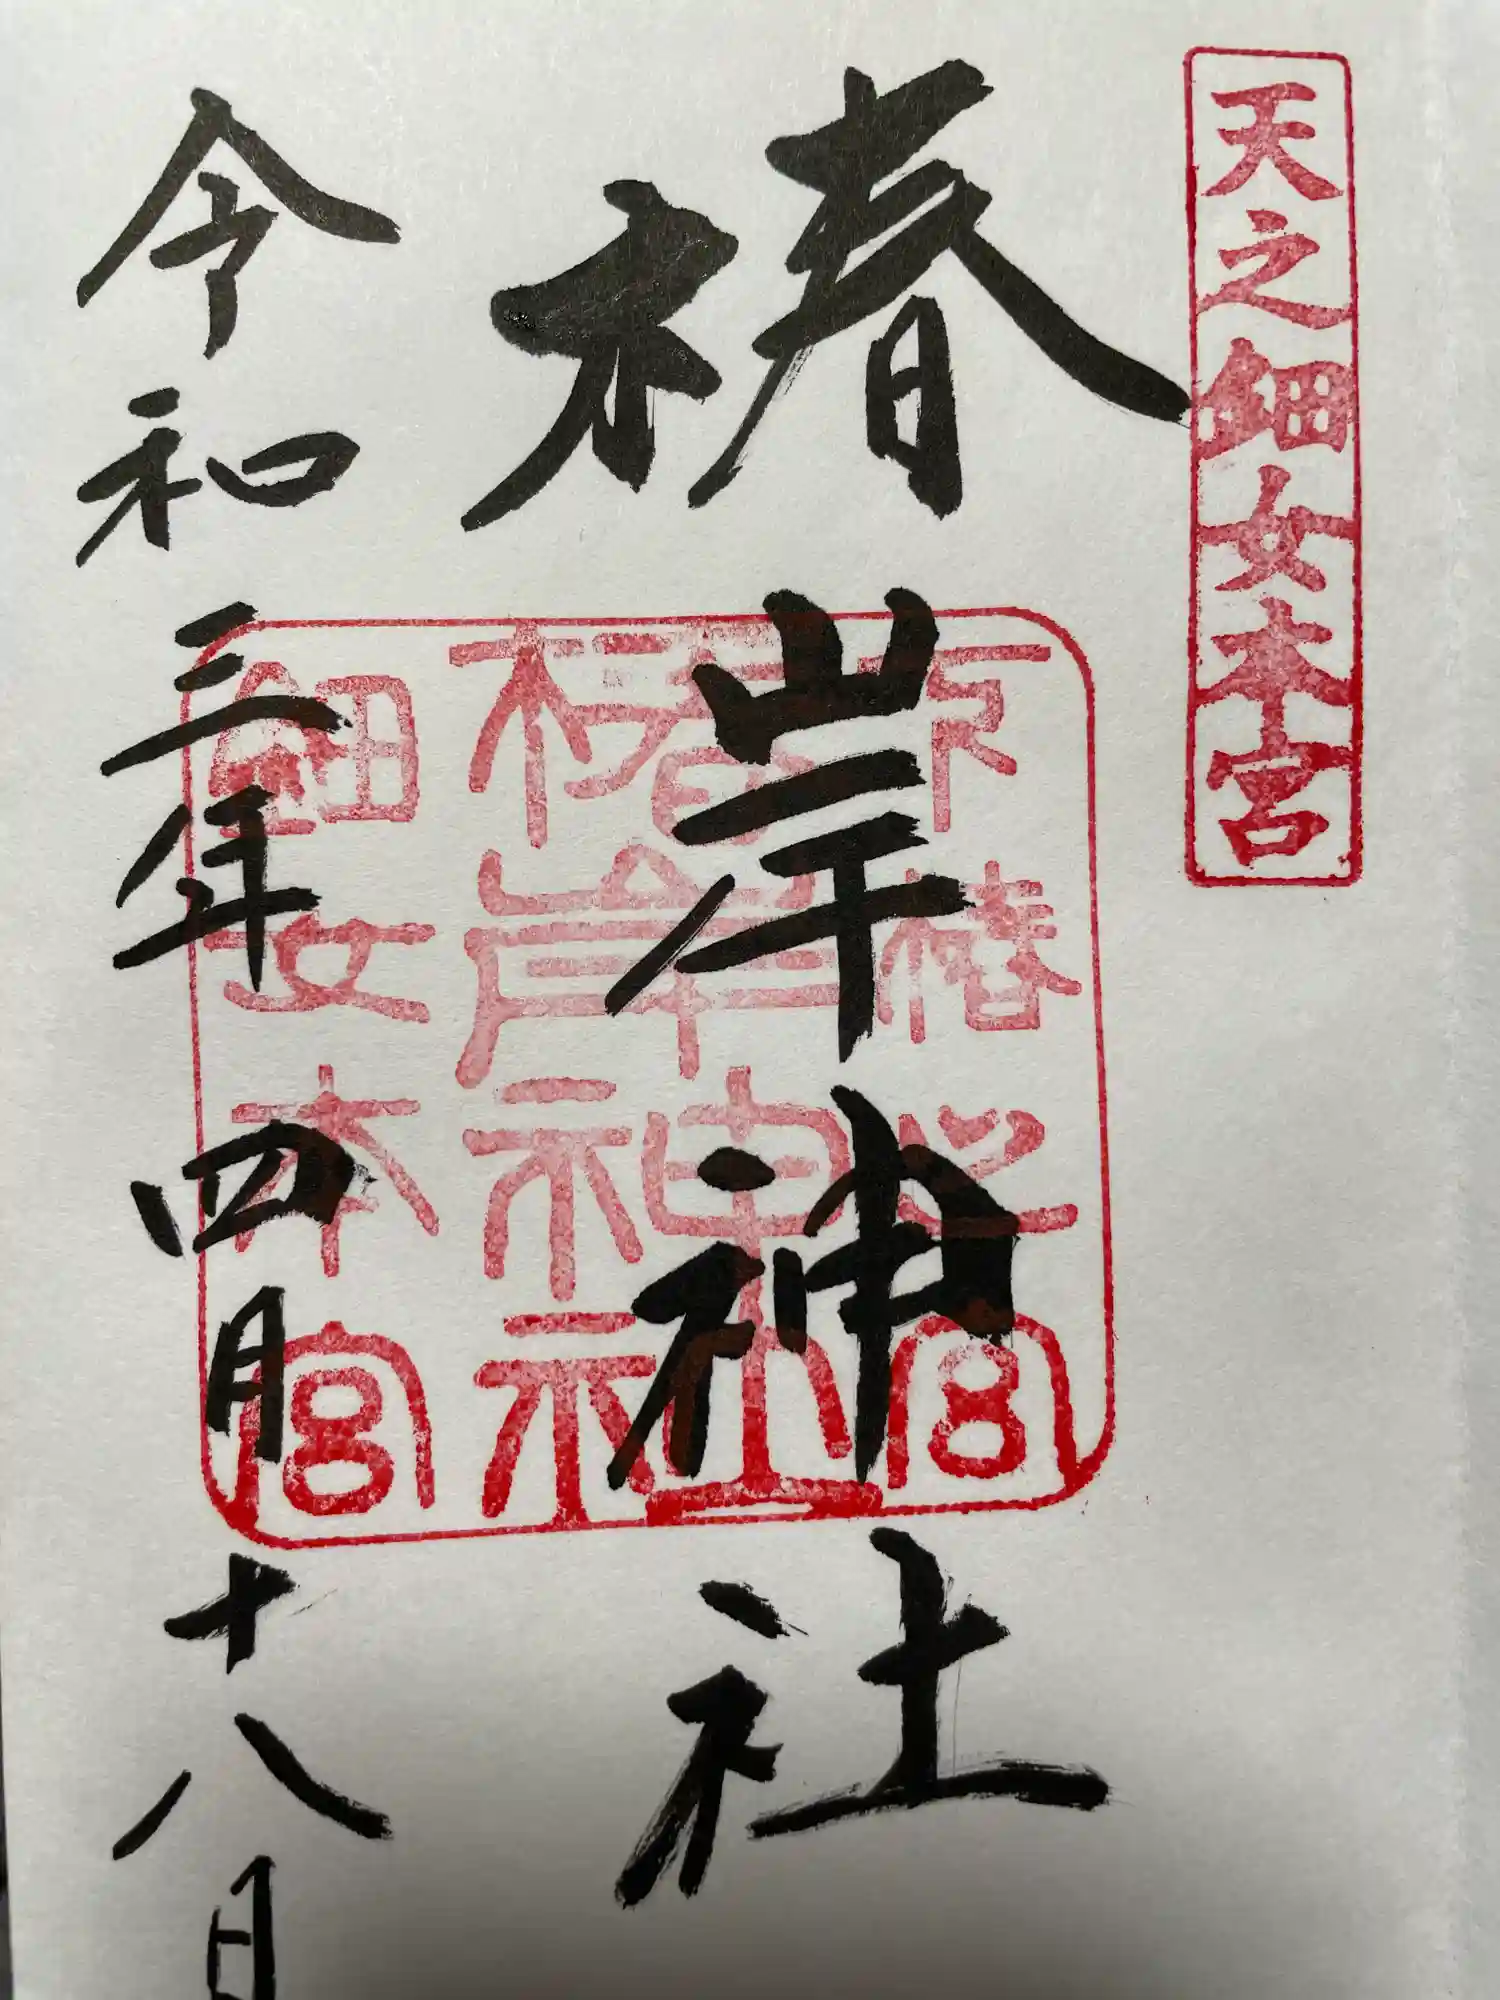 天之鈿女本宮
椿岸神社
椿之宮
椿岸神社
鈿女本宮
令和三年四月十八日